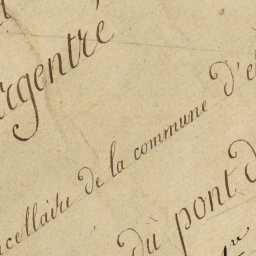 rgentré
rcellaire de la commune d'
du pont d